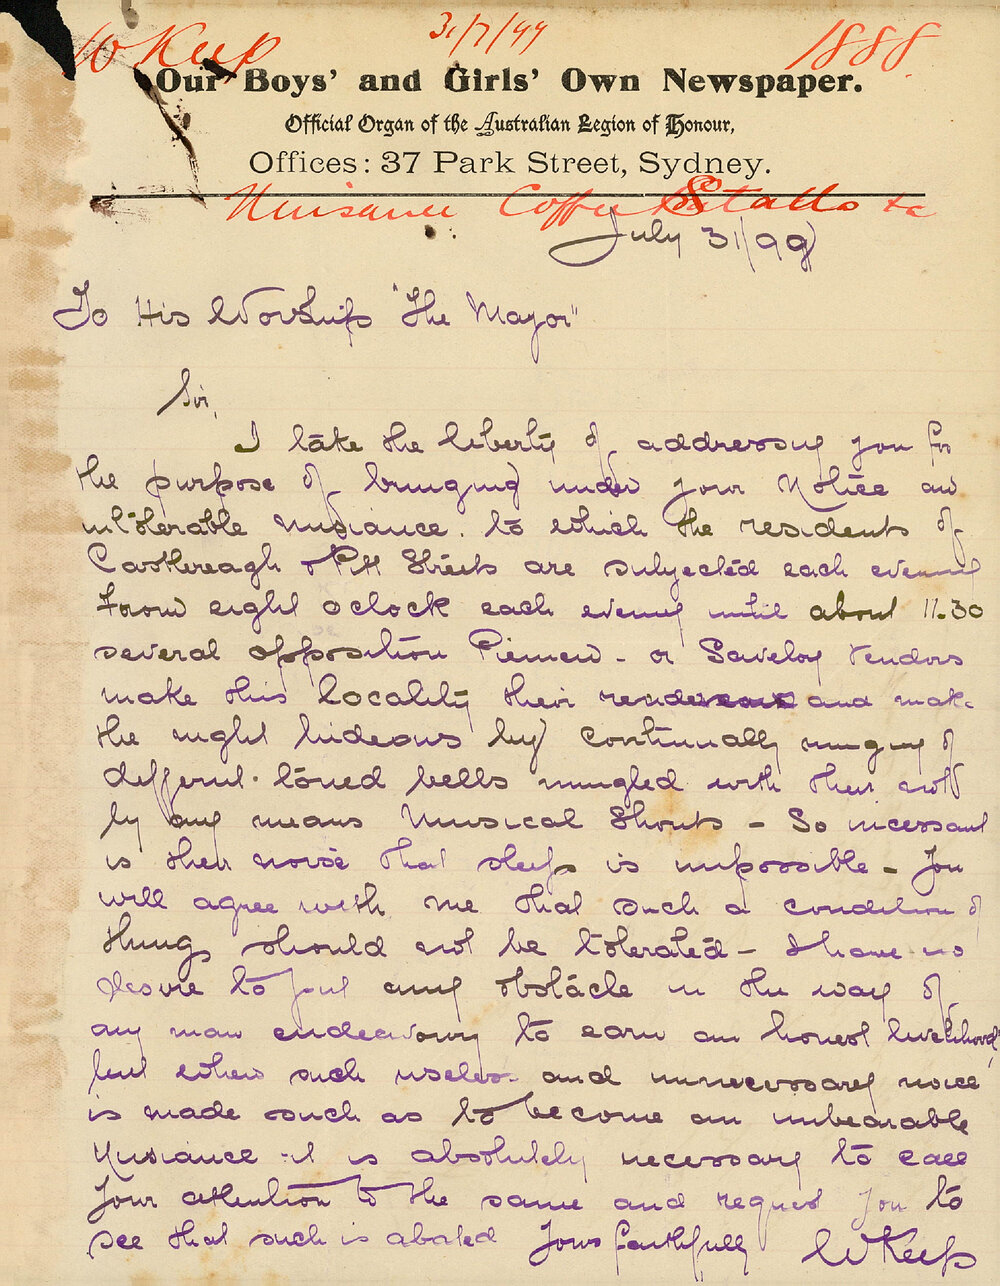 W Keep 31/7/99 1888.
Our Boys' and Girls' Own Newspaper.
Official Organ of the Australian Legion of Honour,
Offices: 37 Park Street, Sydney.
Nuisance Coffee Stalls &c
July 31/99
To His Worship "The Mayor"
Sir,
I take the liberty of addressing you for
the purpose of bringing under your Notice an
intolerable Nusiance. to which the residents of
Castlereagh & Pitt Streets are subjected each evening
From eight oclock each evening until about 11.30
several opposition Piemen - or Saveloy Vendors
make this locality their and make
the night hideous by continually ringing of
different toned bells mingled with their not
by any means Musical Shouts - So incessant
is their noise that sleep is impossible - You
will agree with me that such a condition of
things should not be tolerated - I have no
desire to put any obstacle in the way of
any man endeavouring to earn an honest livelihood,
but when such useless and unnecessary noise
is made such as to become an unbearable
Nusiance it is absolutely necessary to call
Your attention to the same and request you to
see that such is abated Yours faithfully W Keep